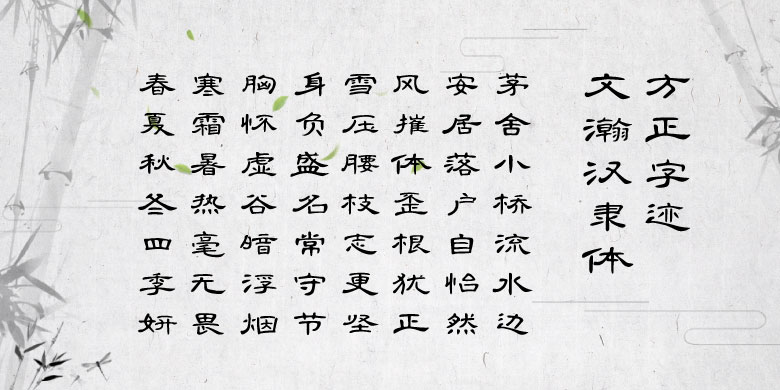 方正字迹
文瀚汉隶体
茅舍小桥流水边
安居落户自怡然
风摧体歪根犹正
雪压腰枝志更坚
身负盛名常守节
胸怀虚谷暗浮烟
寒霜暑热毫无畏
春夏秋冬四季妍